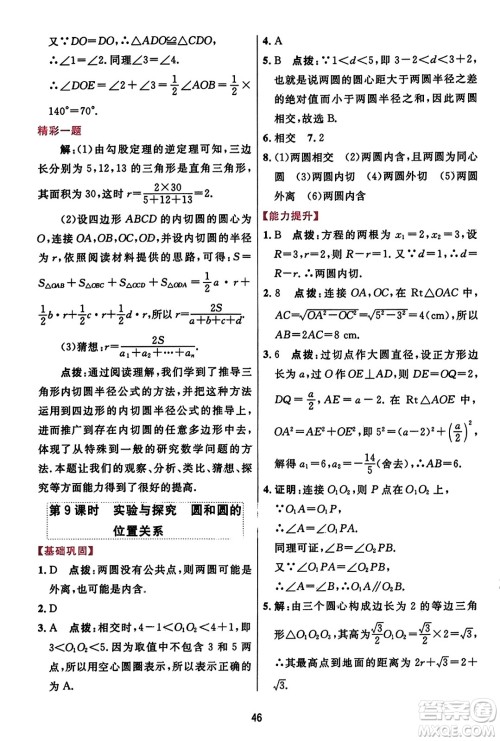 又∵DO=DO,∴△ADO≌△CDO.
∴∠1=∠2.同理可得∠3=∠4.
∴∠DOE=∠2+∠3=1/2∠AOB=1/2×
140°=70°.
精彩一题
解:(1)由勾股定理的逆定理可知,三边
长分别为5,12,13的三角形是直角三角形,
其面积为30,易得r=2×30/(5+12+13)=2.
(2)设四边形ABCD的内切圆的圆心为
O,连接OA,OB,OC,OD,内切圆的半径
为r,依照阅读材料提供的思路,可得:S=
S△OAB+S△OBC+S△OCD+S△ODA=1/2a·r+
1/2b·r+1/2c·r+1/2d·r,∴r=2S/(a+b+c+d).
(3)猜想:r=2S/(a₁+a₂+…+aₙ).
点拨:通过阅读理解,我们学习了推导三
角形内切圆半径公式的方法,并将这一方法
进而推广到了四边形的内切圆半径公式的推导,
体现了从特殊到一般的研究数学问题的方
法.本题让我们的观察、分析、类比、猜想、探
究等能力得到了很好的提高.
第9课时 实验与探究 圆和圆的
位置关系
【基础巩固】
1.D 点拨:两圆没有公共点,则两圆可能
外离,也可能内含.
2.D
3.A 点拨:相交时,4-1<O₁O₂<4+1,即
3<O₁O₂<5.因为取值中不包括3和5,
所以应用空心圆圈在数轴上表示.故选
为A.
4.A
5.B 点拨:∵1<d<5,即3-2<d<3+2,
指的就是说两圆的圆心距大于两圆半径之差
的绝对值而小于两圆半径之和,∴两圆相
交.故选B.
6.相交 7.2
8.(1)两圆相交 (2)两圆内含,且为同心
圆 (3)两圆外切 (4)两圆内切 (5)两圆
外离 (6)两圆内含
【能力提升】
1.B 点拨:方程的两根为x₁=2,x₂=3,设
R=3,r=2,∴R-r=1.又∵d=1,∴d=
R-r.∴两圆内切.
2.8 点拨:连接OA,OC,在Rt△OAC中,
AC=√(OA²-OC²)=√(5²-3²)=4(cm),∴AB
=8 cm.
3.6 点拨:过切点作大圆直径,设正方形边
长为a,连接OA,作OE⊥AD,则EA=
DQ=a/2,OA²=AE²+OE²,5²=(a-5)²+(a/2)²,
解得:a₁=6,a₂=-14/5(舍去),∴边长为6.
4.证明:连接O₁O₂,∵O₁A=O₁O₂,
∴∠A=∠O₁O₂A.
同理可证,∠B=∠O₁O₂A.
∴∠A=∠B.
5.解:由三个圆心构成边长为2r的等边三角
形△O₁O₂O₃,
∴最高点到地面的距离为2r+√3r.